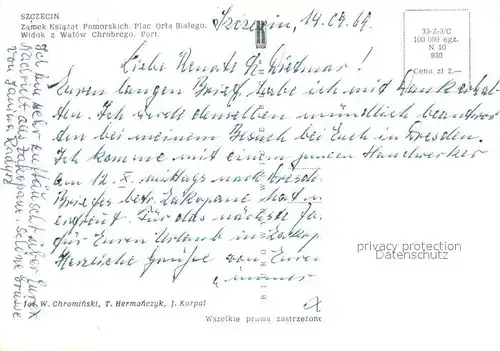 SZCZECIN
Zamek Książąt Pomorskich. Plac Orła Białego.
Widok z Wałów Chrobrego. Port.
33-Z-3/C
100 000 egz.
N 10
930
Cena zł 2.—
Szczecin, 14.09.69.
Liebe Renate u. Dietmar!
Euren langen Brief habe ich mit Dank erhal-
ten. Ich werde denselben mündlich beantwor
den bei meinem Besuch bei Euch in Dresden.
Ich komme mit einem jungen Handwerker
am 12. X. mittags nach Dresde
Briefes betr. Zakopane hat
erfreut. Für das nächste Ja
für Euren Urlaub in Zakop
Herzliche Grüße von Euren
immer
Ich bin sehr enttäuscht über Eure
Nachricht aus Zakopane. Schöne Grüsse
von Janina
privacy protection
watermark
Fot. W. Chromiński, T. Hermańczyk, J. Korpal
Wszelkie prawa zastrzeżone